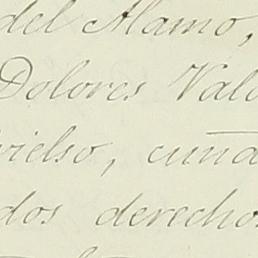 del Alamo,
Dolores Vald
vielso, cuña
dos derechos